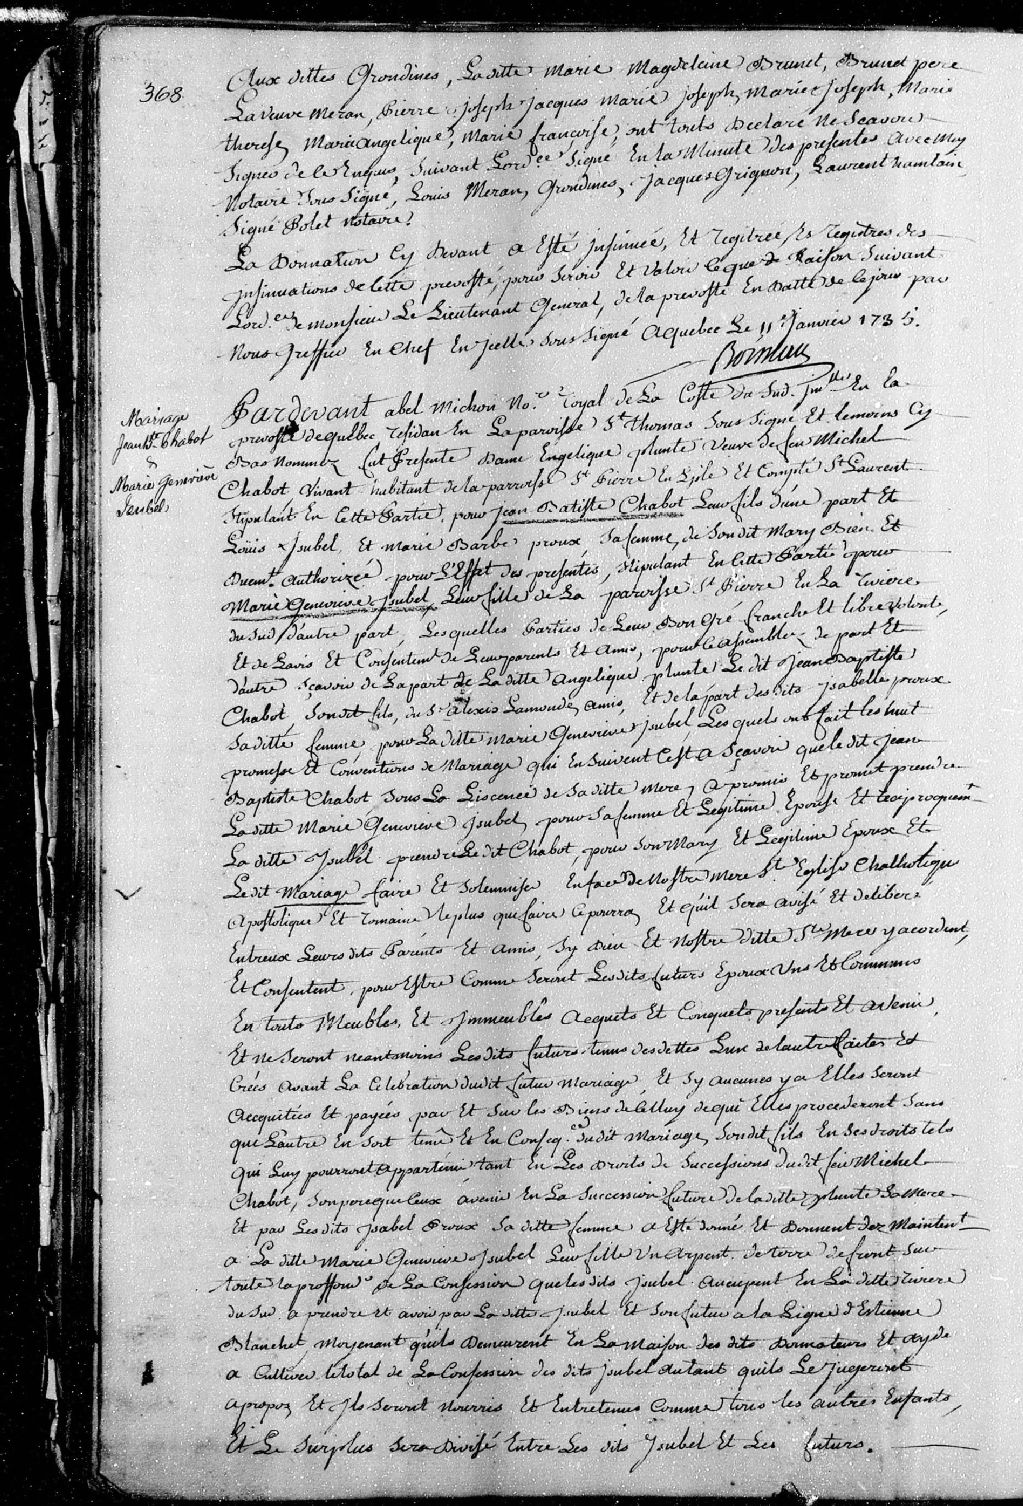 368
Aux dittes Grondines, Laditte Marie Magdeleine Brunet, Brunet pere
La veuve Meran, Pierre Joseph Jacques Marie Joseph, Marie Joseph, Marie
therese, Marie angelique, Marie françoise, ont touts Declaré Ne Scavoir
Signer de ce Enquis, Suivant Lord.ce Signé En La Minutte des presentes Avec Moy
Notaire Sous Signé, Louis Meran, Grondines, Jacques Grignon, Laurent hamlain
Signé Polet Notaire.
La Donnation Cy Devant a Esté Insinuée, Et Regitrée Es Registres des
Insinuations de Cette prevosté, pour Servir Et Valoir Ce que de Raison Suivant
Lord.ce de monsieur Le Lieutenant General, de la prevosté En Datte de Ce jour par
Nous Greffier En Chef En Jcelle Sous Signé A quebec Le 11.e Janvier 1735.
Boisseau
Mariage
Jean Bt. Chabot
&
Marie Geneviève
Isabel
Pardevant abel Michon No.re royal de La Coste du Sud. En La
prevosté de québec residan En La paroisse St Thomas Sous Signé Et temoins Cy
Bas Nommez fut Presente Dame Engelique plunte Veuve de feu Michel
Chabot Vivant habitant de la parroisse St Pierre En Lisle Et Compté St Laurent
Stipulante En Cette Partie, pour Jean Batiste Chabot Leur fils D'une part Et
Loüis Isabel, Et Marie Barbe proux Sa femme, de Son dit Mary Bien Et
Duemt. authorizée pour L'Effet des presentes, Stipulant En Cette Partie pour
Marie Genevieve Isabel Leur fille de La paroisse St Pierre En La riviere
du Sud d'autre part, Lesquelles Parties de Leur Bon Gré franche Et libre volonté,
Et de Lavis Et Consentemt. de Leurs parents Et Amis, pour Ce assemblez de part Et
dautre Sçavoir de La part de La ditte Angelique plunte Le dit Jean Baptiste
Chabot, Son dit fils, du Sr Alexis Lamonde, amis, Et de la part des dits Isabelle proux
Sa ditte femme pour La ditte Marie Genevieve Isabel, Les quels ont fait les
promesse Et Conventions de Mariage qui En Suivent C'est a Sçavoir que le dit Jean
Baptiste Chabot Sous La Liscence de Sa ditte Mere, a promis Et promet prendre
La ditte Marie Genevieve Isabel, pour Sa femme Et Legitime Epouse Et reciproquemt.
La ditte Isabel prendre Le dit Chabot, pour Son Mary Et Legitime Epoux Et
Le dit Mariage faire Et Solemniser En face de Nostre Mere Ste Eglise Chatholique
Apostolique Et romaine le plus que faire Ce pourra, Et quil Sera avisé Et deliberé
Entreux Leurs dits Parents Et Amis, Sy Dieu Et Nostre ditte Ste Mere y acordent,
Et Consentent, pour Estre Comme Seront Les dits futurs Epoux Uns Et Communs
En touts Meubles, Et Immeubles Acquets Et Conquets, presents Et avenir,
Et ne Seront neantmoins Les dits futurs tenus des dettes Lun de Lautre faites Et
Crées avant La Celebration dudit futur Mariage, Et Sy aucunes y a Elles Seront
acquitées Et payées par Et Sur les Biens de Celluy de qui Elles procederont Sans
que Lautre En Soit tenu Et En Conseq.ce du dit Mariage, Son dit fils En Ses droits tels
qui Luy pourront appartenir tant En Les Droits de Successions du dit feu Michel
Chabot, Son pere que Ceux avenir En La Succession future de la ditte plunte Sa Mere
Et par Les dits Isabel Proux Sa ditte femme a Esté donné Et Donnent dez Maintent
a La ditte Marie Genevieve Isabel Leur fille Un Arpent de terre de front Sur
toute La proffondr de La Consession que les dits Isabel occupent En La ditte riviere
du Sud a prendre et avoir par La ditte Isabel Et Son futur a la Ligne d'Estienne
Blanchet Moyenant quils Demeurent En La Maison des dits Donnateurs Et Ayde
a Cultiver le total de La Consession des dits Isabel Autant quils Le Jugeront
apropos, Et Jls Seront Nourris Et Entretenus Comme tous les autres Enfants,
Et Le Surplus Sera Divisé Entre Les dits Isabel Et Les futurs.